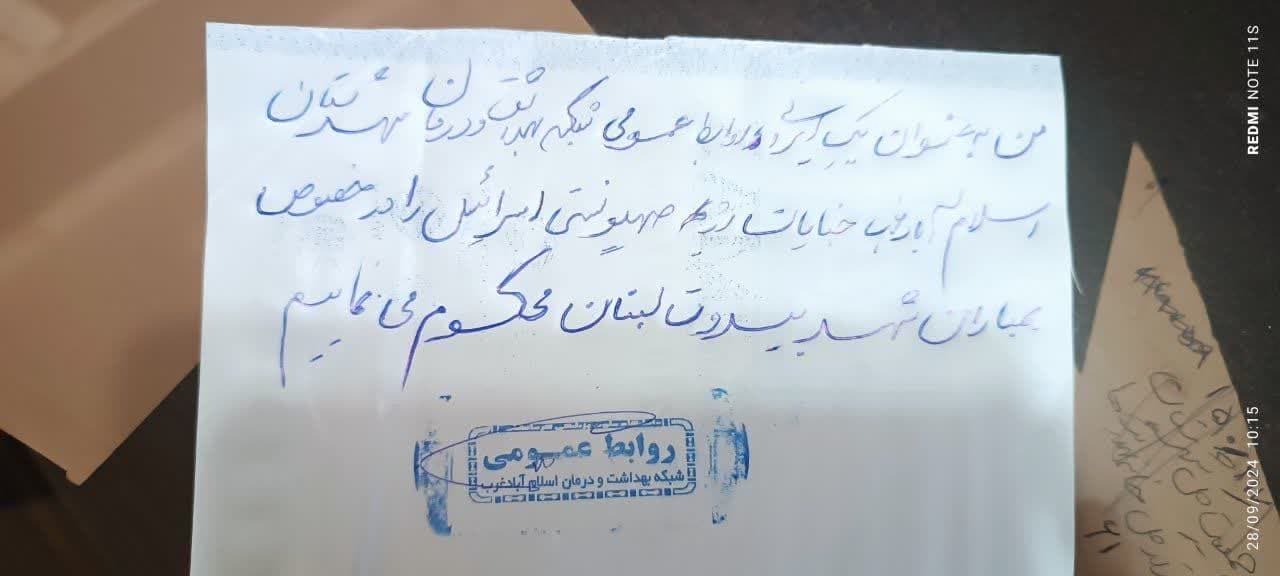 من به عنوان یک ایرانی و روابط عمومی شبکه بهداشت و درمان شهرستان
اسلام آبادغرب جنایات رژیم صهیونیستی اسرائیل را در خصوص
بمباران شهر بیروت لبنان محکوم می نماییم
روابط عمومی
شبکه بهداشت و درمان اسلام آبادغرب
REDMI NOTE 11S
28/09/2024 10:15